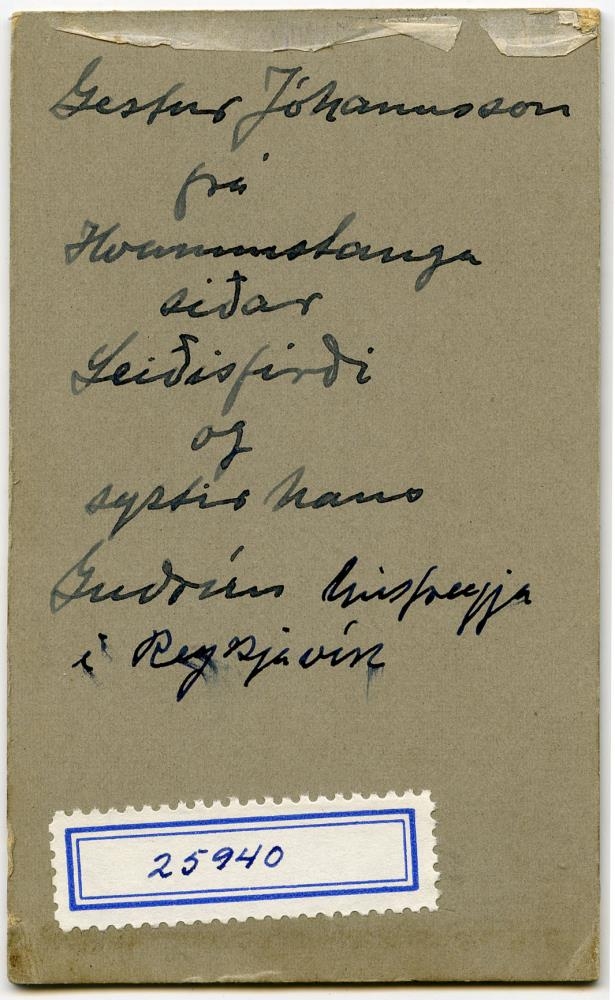 Gestur Jóhannsson
frá
Hvammstanga
siðar
Seiðisfirði
og
systir hans
Guðrún húsfreyja
í Reykjavík
25940